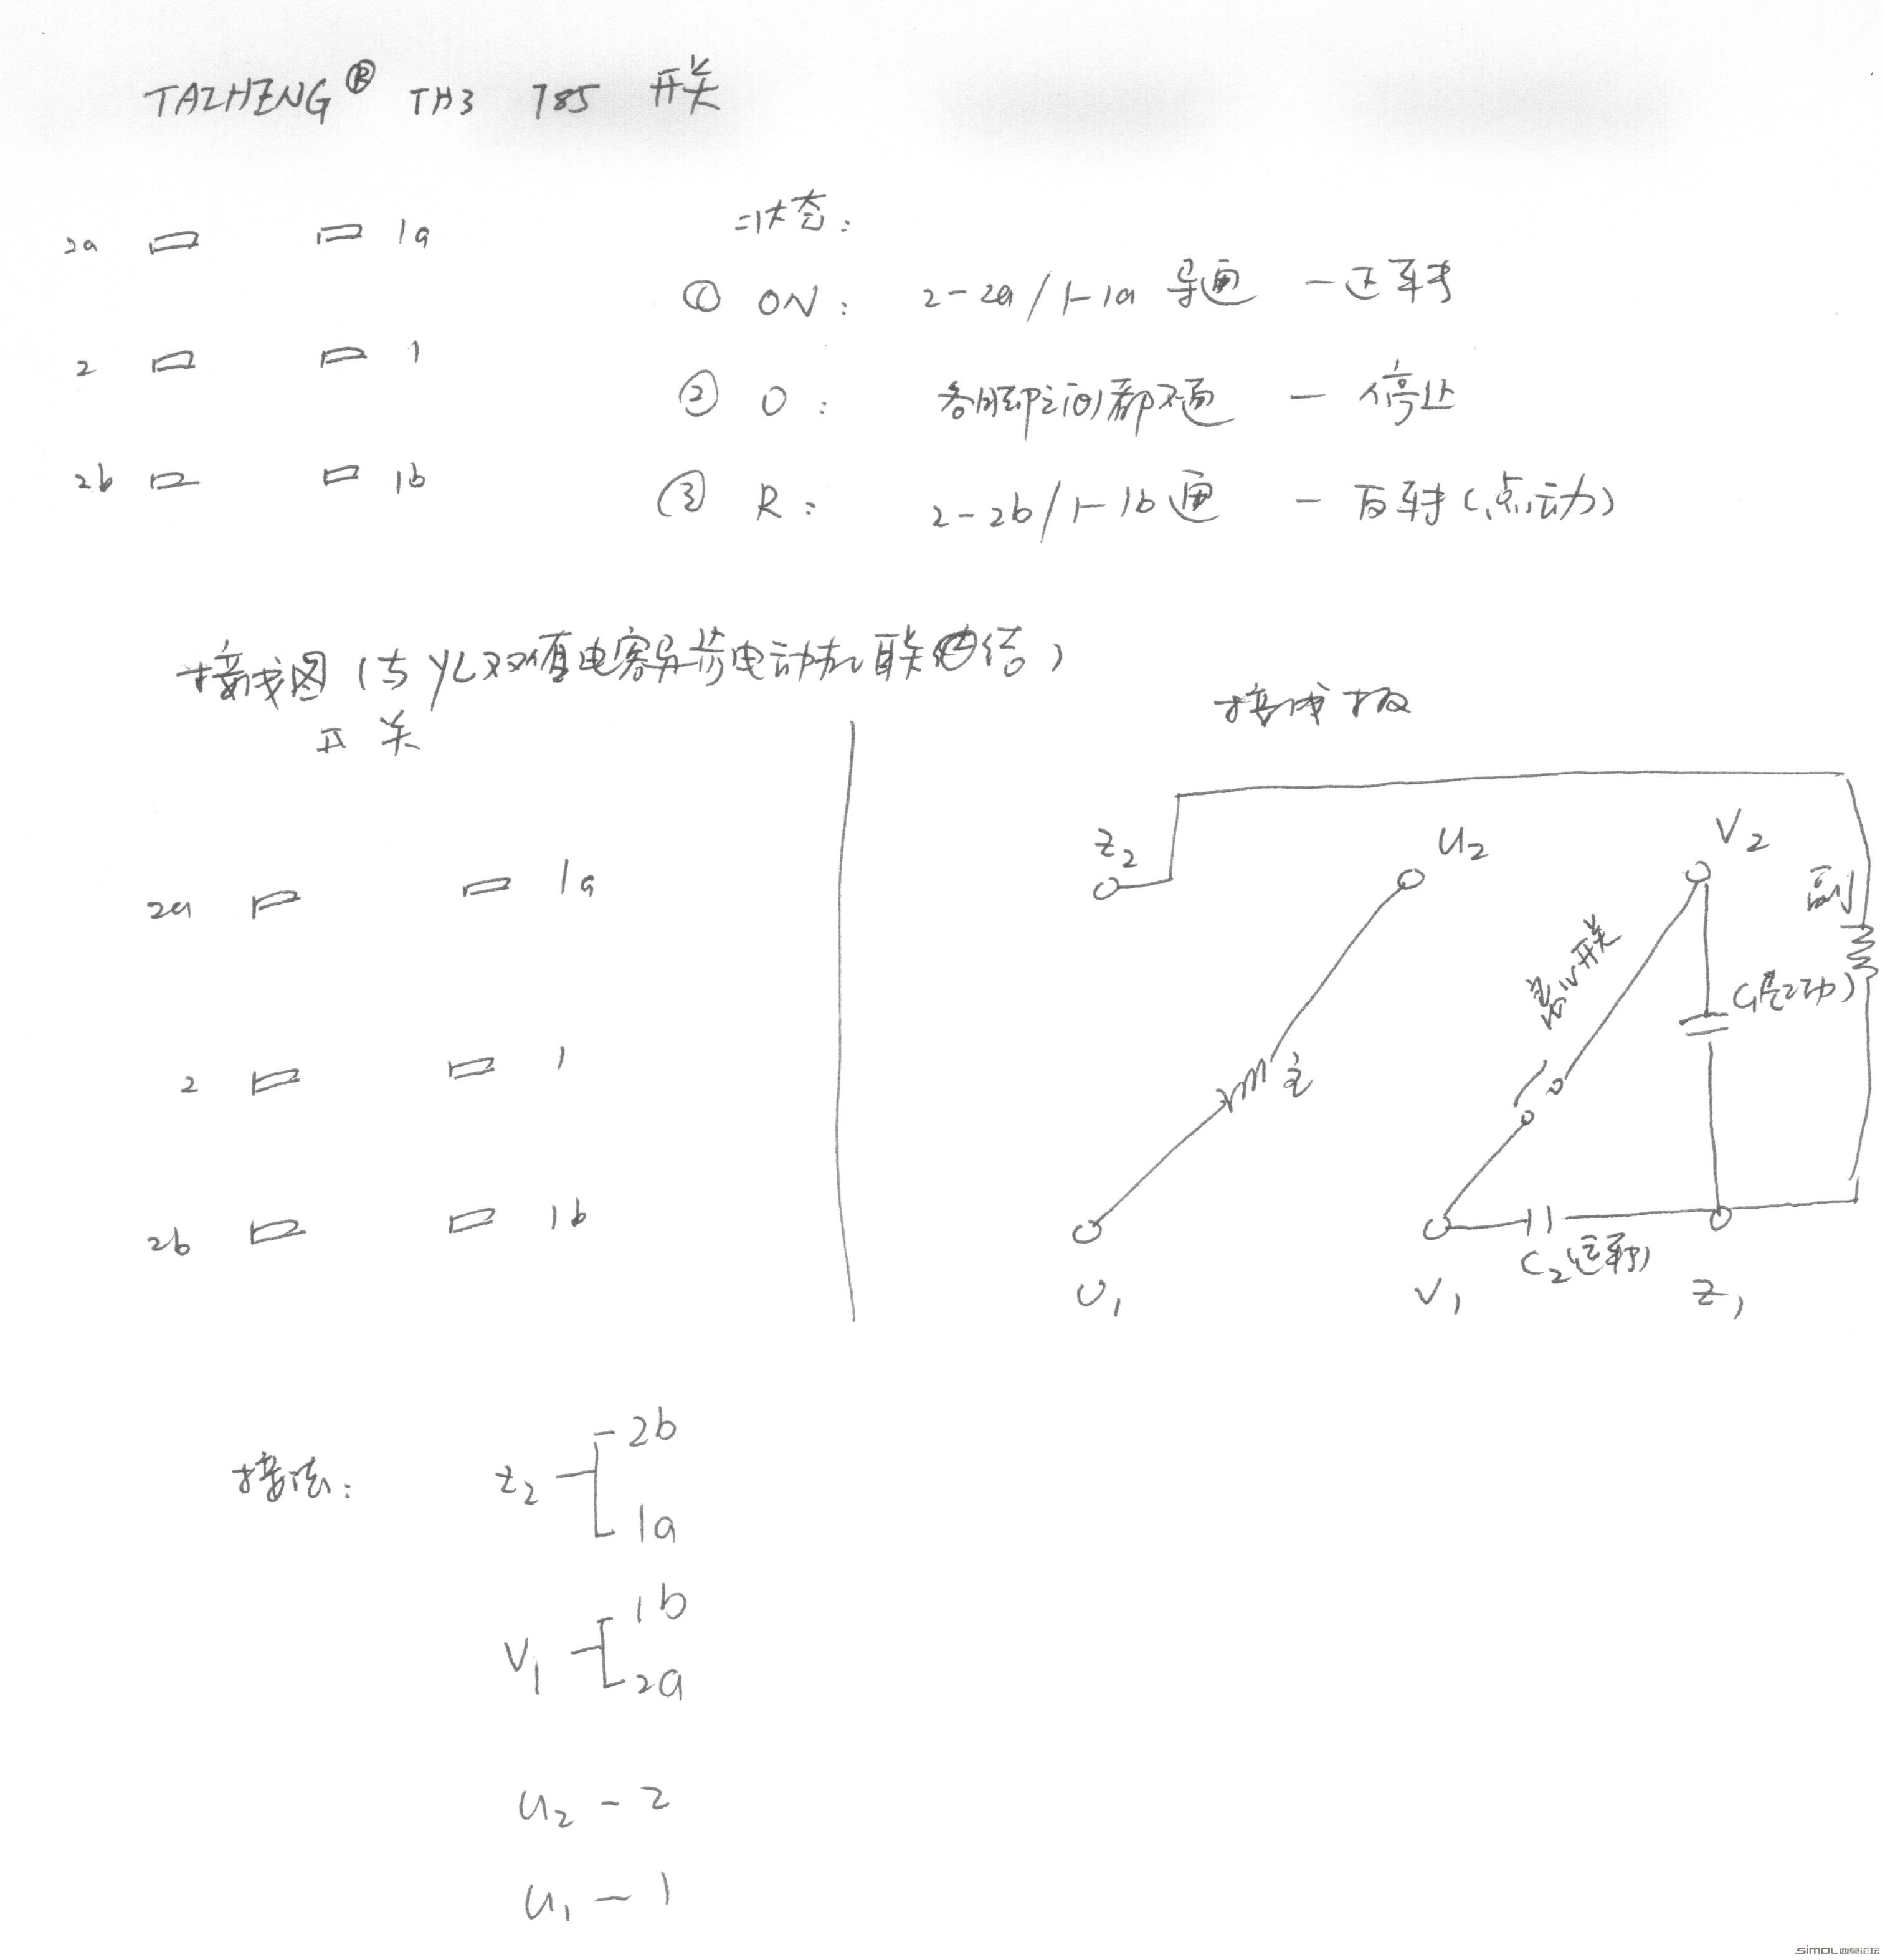 TAIHENG® TH3 785 开关
2a 1a
2 1
2b 1b
状态:
① ON: 2-2a/1-1a 导通 — 正转
② O: 各脚之间都不通 — 停止
③ R: 2-2b/1-1b 通 — 反转(点动)
接线图(与YL双值电容异步电动机联结)
开关
接线板
2a 1a
2 1
2b 1b
Z2 U2 V2
副
离心开关
C1(启动)
主
C2(运转)
U1 V1 Z1
接法:
Z2 2b
1a
V1 1b
2a
U2 - 2
U1 - 1